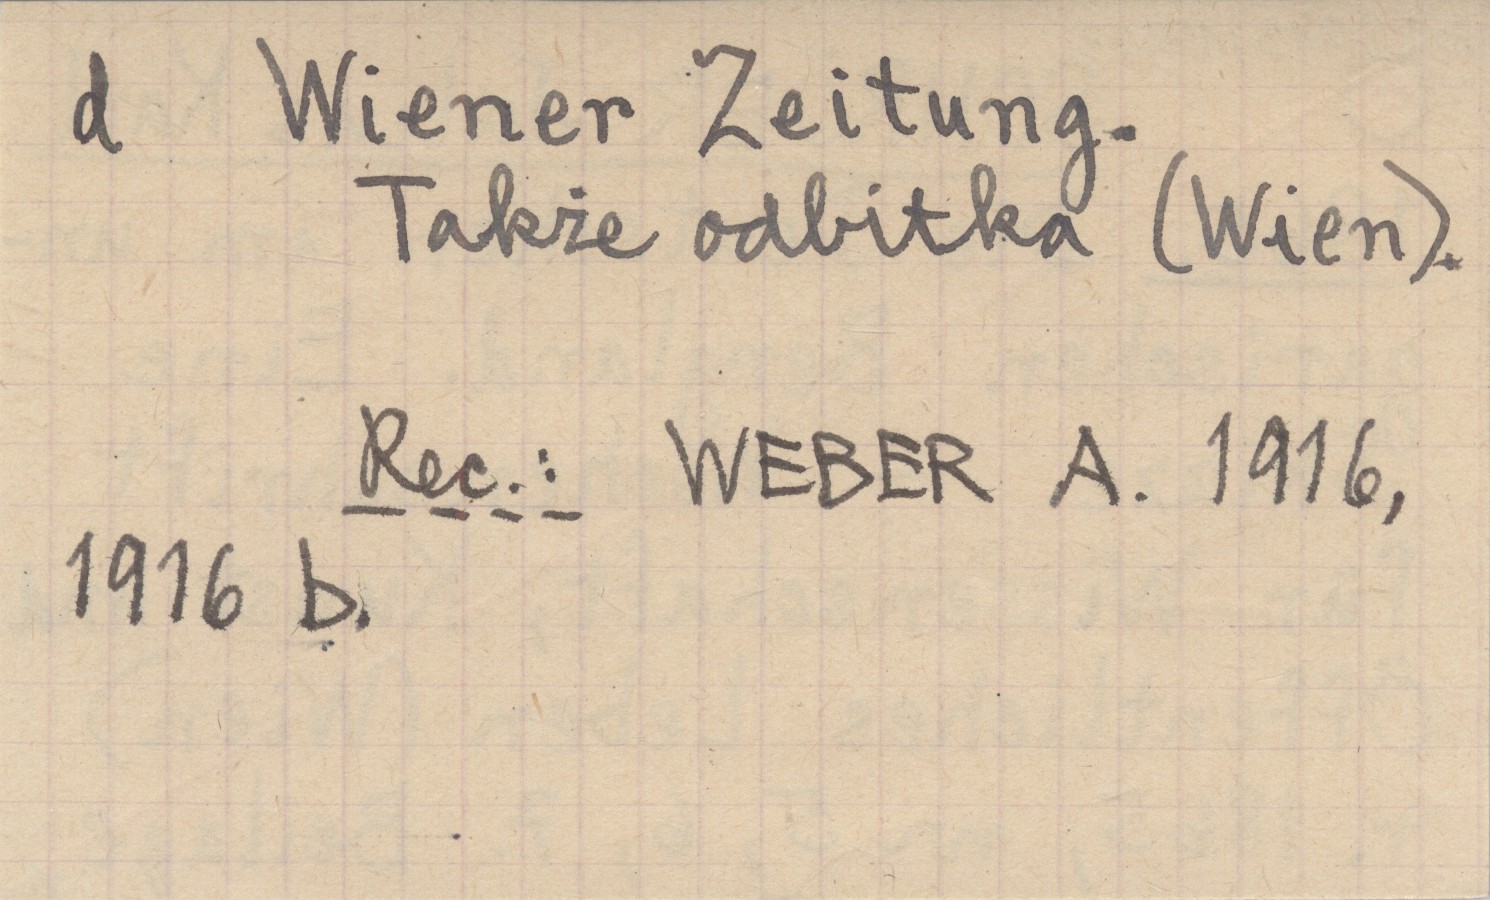 d Wiener Zeitung.
Także odbitka (Wien).
Rec.: WEBER A. 1916,
1916 b.